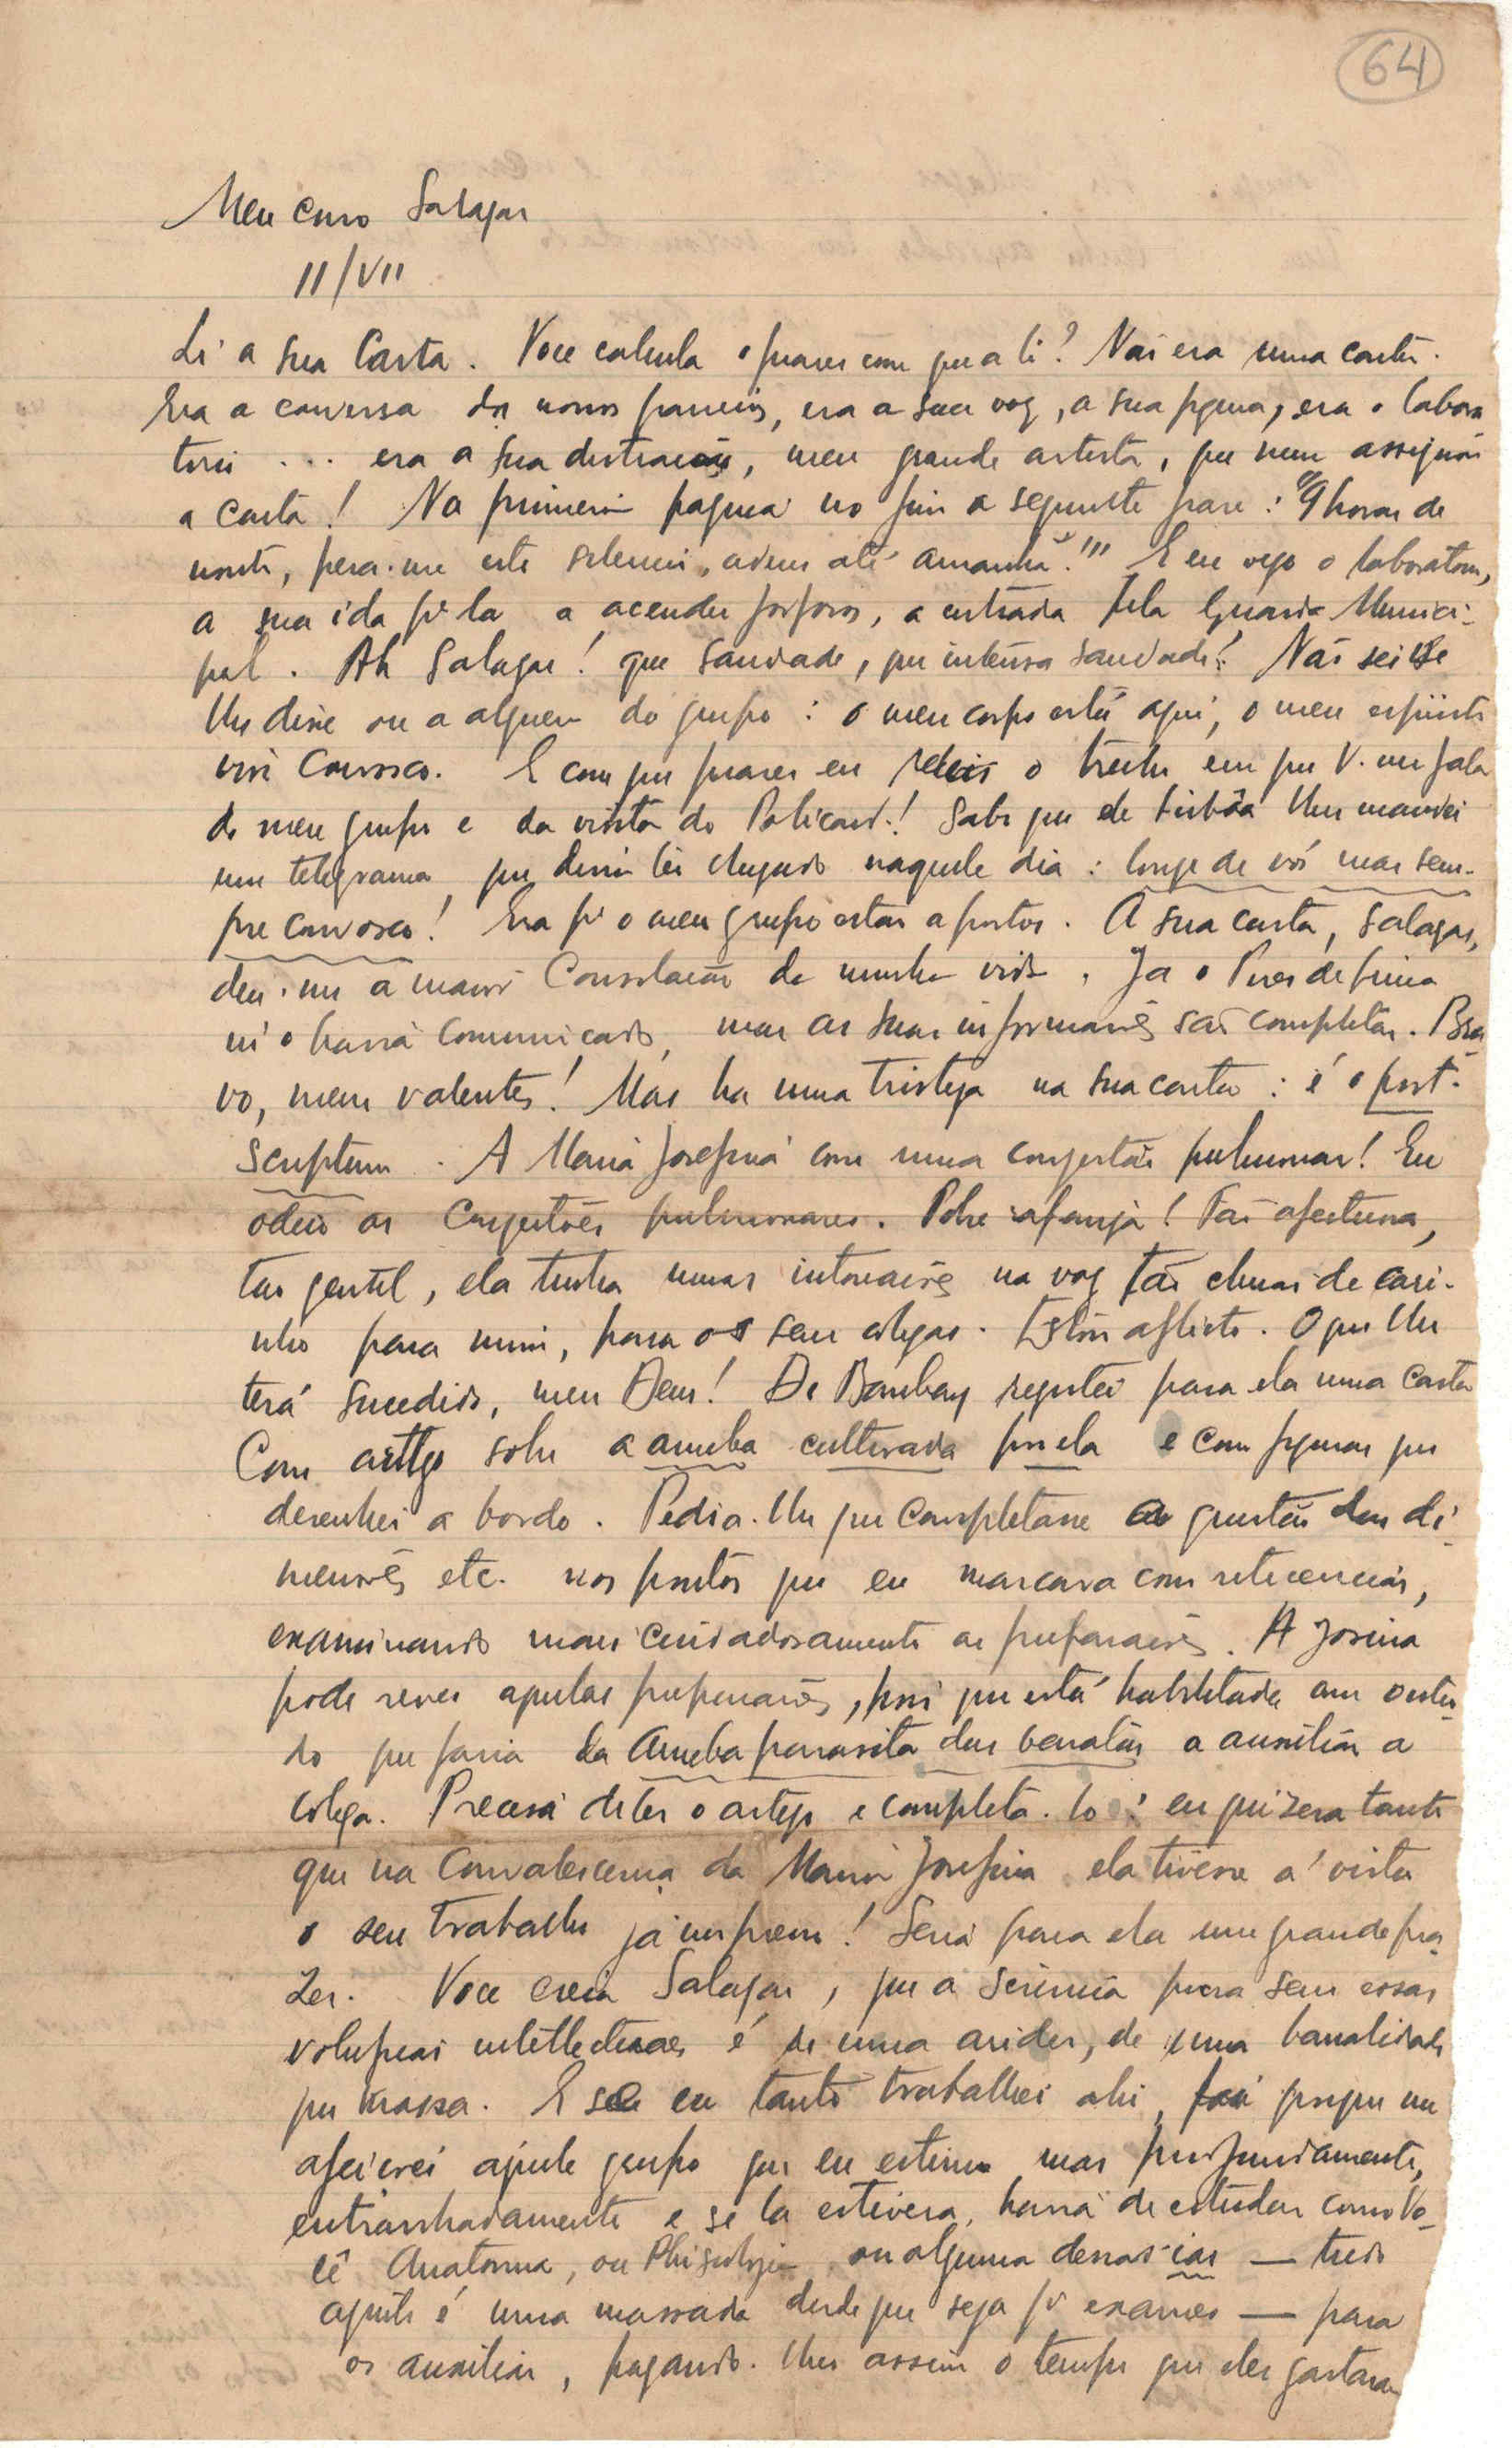 64
Meu caro Salazar
11/VII
Li a sua Carta. Voce calcula o prazer com que a li? Não era uma carta.
Era a conversa dos nossos passeios, era a sua voz, a sua figura, era o labora
torio ... era a sua distracção, meu grande artista, que nem assignou
a carta! Na primeira pagina no fim a seguinte frase: "9 horas de
noite, pesa-me este silencio, adeus até amanhã"!!! E eu vejo o laboratorio,
a sua ida pr lá a acender fosforos, a entrada pela Guarda Munici-
pal. Ah Salazar! que saudade, que intensa saudade! Não sei se
lhe disse ou a alguem do grupo: o meu corpo está aqui, o meu espirito
vive convosco. E com que prazer eu releio o trecho em que V. me fala
do meu grupo e da visita do Policard! Sabe que de Lisbôa lhes mandei
um telegrama, que devia ter chegado naquele dia: longe de vós mas sem-
pre convosco! Era pr o meu grupo estar a postos. A sua carta, Salazar,
deu-me a maior Consolação da minha vida. Ja o Pires de Lima
m'o havia comunicado, mas as suas informações são completas. Bra
vo, meus valentes! Mas ha uma tristeza na sua carta: é o post-
scriptum. A Maria Josefina com uma congestão pulmonar! Eu
odeio as congestões pulmonares. Pobre rapariga! Tão afectuosa,
tão gentil, ela tinha umas intonações na voz tão cheias de cari-
nho para mim, para os seus colegas. Estou aflicto. O que lhe
terá sucedido, meu Deus! De Bombay registei para ela uma carta
Com artigo sobre a ameba cultivada por ela e com figuras que
desenhei a bordo. Pedia-lhe que completasse a questão das di-
mensões etc. nos pontos que eu marcava com reticencias,
examinando mais cuidadosamente as preparações. A Josina
pode rever aquelas preparações, pois que está habilitada com o estu-
do que fazia da Ameba parasita das baratas a auxiliar a
colega. Precisa de ler o artigo e completa-lo: eu quizera tanto
que na Convalescença da Maria Josefina ela tivesse á vista
o seu trabalho já impresso! Seria para ela um grande pra
zer. Voce creia Salazar, que a sciencia pura sem essas
volupias intellectuaes é de uma aridez, de uma banalidade
que massa. E se eu tanto trabalhei ahi, foi porque me
afeiçoei áquele grupo que eu estimo mas profundamente,
entranhadamente e se la estivera, havia de estudar como Vo-
cê Anatomia, ou Phisiologia ou alguma dessas ias — tudo
aquilo é uma massada desde que seja pr exames — para
os auxiliar, pagando-lhes assim o tempo que eles gastaram